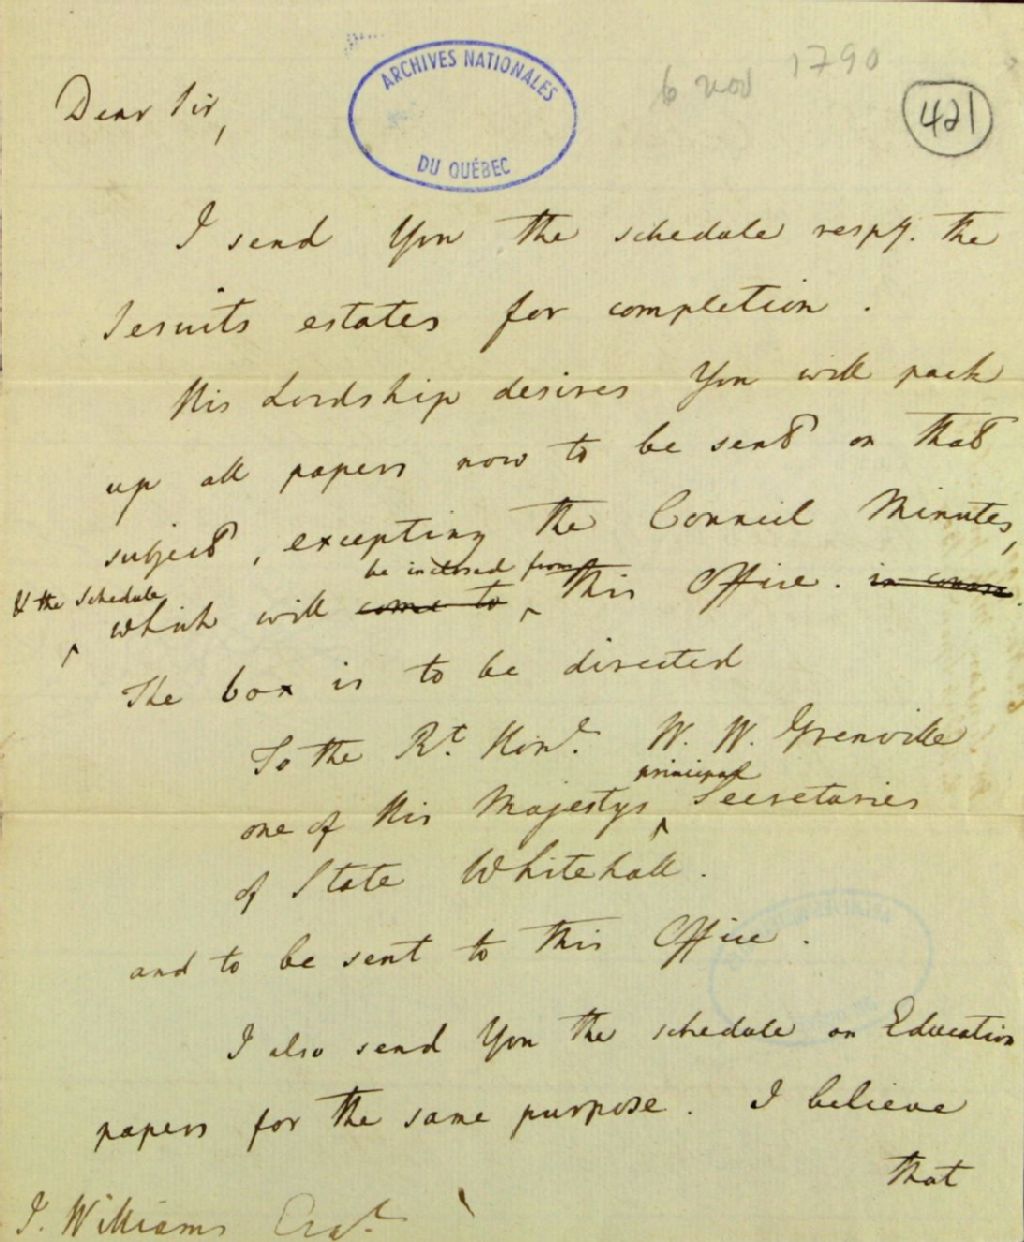 ARCHIVES NATIONALES
DU QUÉBEC
6 nov 1790
421
Dear Sir,
I send You the schedule respg. the
Jesuits estates for completion.
His Lordship desires You will pack
up all papers now to be sent on that
subject, excepting the Council Minutes,
& the Schedule
be inclosed from
which will come to this Office. in
The box is to be directed
To the Rt. Honl. W. W. Grenville
principal
one of His Majestys Secretaries
of State Whitehall.
and to be sent to this Office.
I also send You the schedule on Education
papers for the same purpose. I believe
that
J. Williams Esqr.